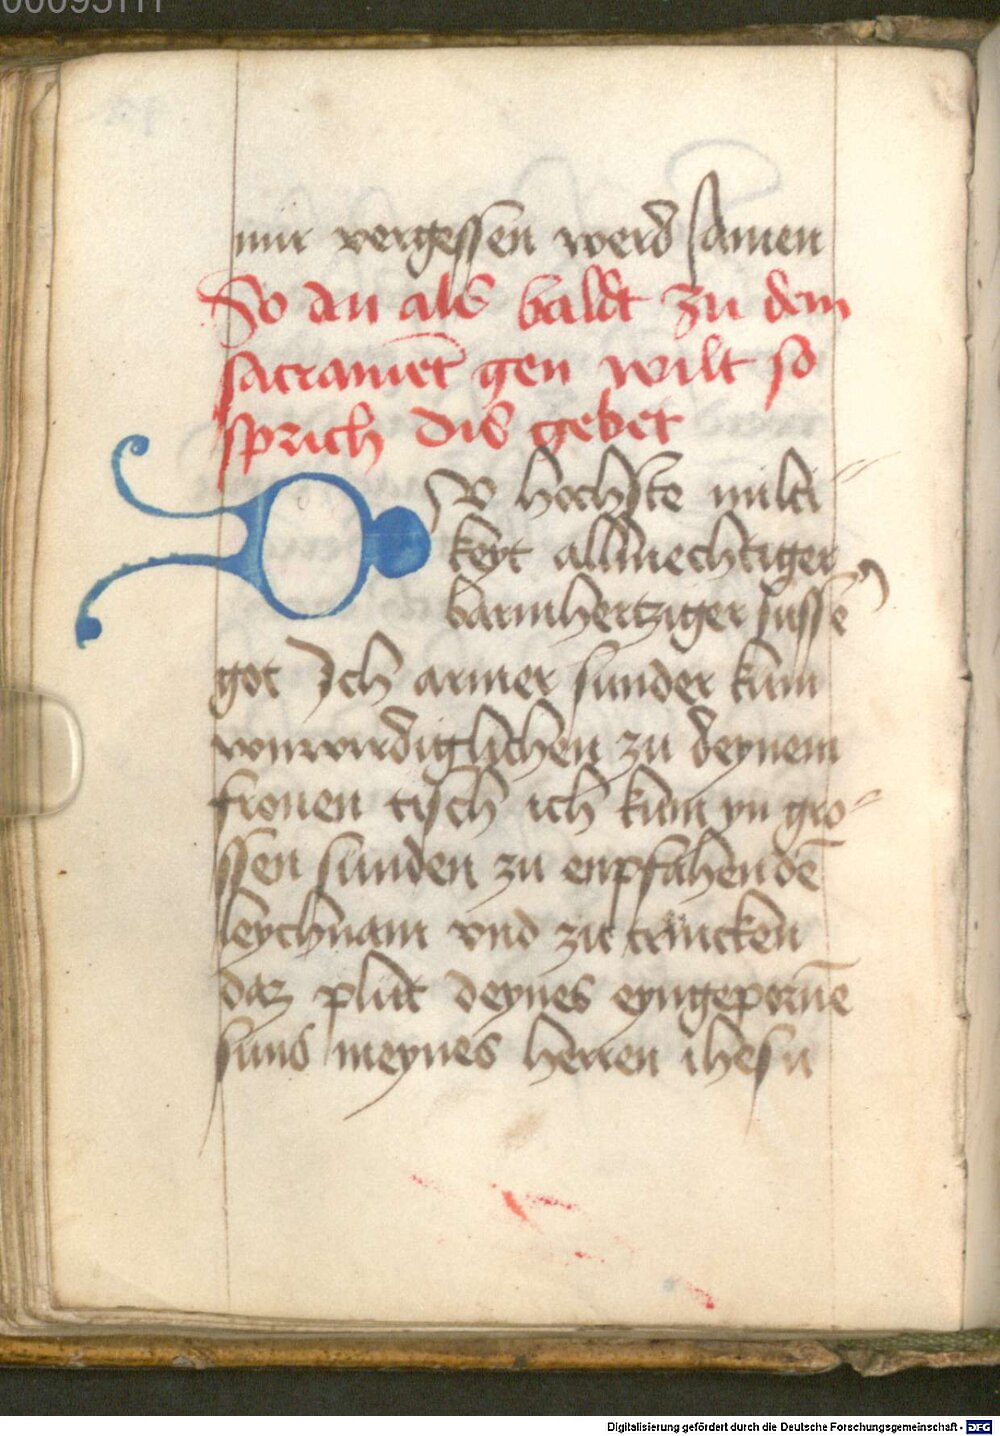 00095111
mir vergessen werd Amen
So du als baldt zu dem
sacramēt gen wilt so
sprich dis gebet
O Du hochste milti-
keyt allmechtiger
barmhertziger susse
got Ich armer sunder kum
vnwirdiglichen zu deynem
fronen tisch ich kum yn gro-
ssen sunden zu enpfahen dē
leychnam vnd zu trincken
daz plut deynes eyngepornē
suns meynes herren ihesu
Digitalisierung gefördert durch die Deutsche Forschungsgemeinschaft - DFG